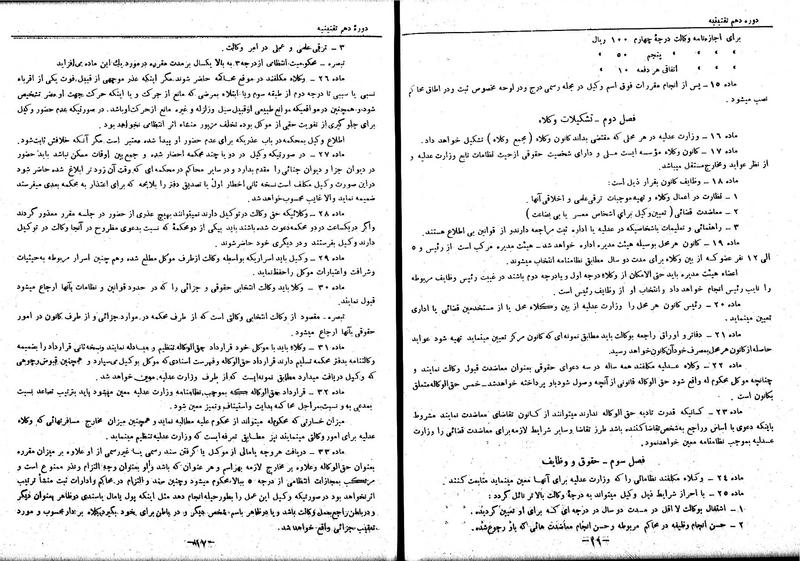 دوره دهم تقنینیه
برای اجازه‌نامه وکالت درجهٔ چهارم ۱۰۰ ریال
» » » پنجم ۵۰ »
» » » اتفاقی هر دفعه ۱۰ »
ماده ۱۵ ـ پس از انجام مقررات فوق اسم وکیل در مجله رسمی درج و در لوحه مخصوص ثبت و در اطاق محاکم
نصب میشود .
فصل دوم ـ تشکیلات وکلاء
ماده ۱۶ ـ وزارت عدلیه در هر محلی که مقتضی بداند کانون وکلاء ( مجمع وکلاء ) تشکیل خواهد داد.
ماده ۱۷ ـ کانون وکلاء مؤسسه ایست ملی و دارای شخصیت حقوقی از حیث نظامات تابع وزارت عدلیه و
از نظر عواید و مخارج مستقل میباشد.
ماده ۱۸ ـ وظایف کانون بقرار ذیل است:
۱ ـ نظارت در اعمال وکلاء و تهیه موجبات ترقی علمی و اخلاقی آنها .
۲ ـ معاضدت قضائی ( تعیین وکیل برای اشخاص معسر یا بی بضاعت )
۳ ـ راهنمائی و تعلیمات باشخاصیکه در عدلیه یا اداره ثبت مراجعه دارند و از قوانین بی اطلاع هستند.
ماده ۱۹ ـ کانون هر محل بوسیله هیئت مدیره اداره خواهد شد ـ هیئت مدیره مرکب است از رئیس و ۵
الی ۱۲ نفر عضو که از بین وکلاء برای مدت دو سال مطابق نظامنامه انتخاب میشوند.
اعضاء هیئت مدیره باید حتی‌الامکان از وکلاء درجه اول و یا درجه دوم باشند در غیبت رئیس وظایف مربوطه
را نایب رئیس انجام خواهد داد و انتخاب او از وظایف رئیس است .
ماده ۲۰ ـ رئیس کانون هر محل را وزارت عدلیه از بین وکلاء محل یا از مستخدمین قضائی یا اداری
تعیین مینماید.
ماده ۲۱ ـ دفاتر و اوراق راجعه بوکالت باید مطابق نمونه‌ای که کانون مرکز تعیین مینماید تهیه شود عواید
حاصله از کانون هر محل بمصرف خود آن کانون خواهد رسید.
ماده ۲۲ ـ وکلاء عدلیه مکلفند همه ساله در سه دعوای حقوقی بعنوان معاضدت قبول وکالت نمایند و
چنانچه موکل محکوم له واقع شود حق الوکاله قانونی از آنچه وصول شود باو پرداخته خواهد شد ـ خمس حق الوکاله متعلق
بکانون است .
ماده ۲۳ ـ کسانیکه قدرت تادیه حق الوکاله ندارند میتوانند از کانون تقاضای معاضدت نمایند مشروط
باینکه دعوی با اساس و راجع به شخص تقاضا کننده باشد طرز تقاضا و سایر شرایط لازمه برای معاضدت قضائی را وزارت
عدلیه بموجب نظامنامه معین خواهد نمود.
فصل سوم ـ حقوق و وظایف
ماده ۲۴ ـ وکلاء مکلفند نظاماتی را که وزارت عدلیه برای آنها معین مینماید متابعت کنند .
ماده ۲۵ ـ با احراز شرایط ذیل وکیل میتواند به درجهٔ وکالت بالاتر نائل گردد :
۱ ـ اشتغال بوکالت لااقل در مدت دو سال در درجه‌ای که برای او تعیین گردیده .
۲ ـ حسن انجام وظیفه در محاکم مربوطه و حسن انجام معاضدت هائی که باو رجوع شده.
دورهٔ دهم تقنینیه
۳ ـ ترقی علمی و عملی در امر وکالت.
تبصره ـ محکومیت انتظامی از درجه ۳ به بالا یکسال بر مدت مقرره در مورد یک این ماده می‌افزاید
ماده ۲۶ ـ وکلاء مکلفند در موقع محاکمه حاضر شوند مگر اینکه عذر موجهی از قبیل فوت یکی از اقرباء
نسبی یا سببی تا درجه دوم از طبقه سوم و یا ابتلاء بمرضی که مانع از حرکت و یا اینکه حرکت جهت او مضر تشخیص
شود و همچنین در مواقعیکه موانع طبیعی از قبیل سیل و زلزله و غیره مانع از حرکت او باشد. در صورتیکه عدم حضور وکیل
برای جلوگیری از تفویت حقی از موکل بوده تخلف مزبور منشاء اثر انتظامی نخواهد بود .
اطلاع وکیل بمحکمه در باب عذریکه برای عدم حضور او پیدا شده معتبر است مگر آنکه خلافش ثابت شود.
ماده ۲۷ ـ در صورتیکه وکیل در دو یا چند محکمه احضار شده و جمع بین اوقات ممکن نباشد باید حضور
در دیوان جزا و دیوان جنائی را مقدم بدارد و در سایر محاکم در محکمه‌ای که وقت آن زودتر ابلاغ شده حاضر شود
در این صورت وکیل مکلف است نسخه ثانی اخطار اول یا تصدیق دفتر را بلایحه که برای اعتذار به محکمه بعدی میفرستد
ضمیمه نماید والا غایب محسوب خواهد شد.
ماده ۲۸ ـ وکلائیکه حق وکالت در توکیل دارند نمیتوانند بهیچ عذری از حضور در جلسه مقرر معذور گردند
و اگر در یکساعت در دو محکمه دعوت شده باشند باید بیکی از دو محکمه که نسبت بدعوی مطروح در آنجا وکالت در توکیل
دارند وکیل بفرستند و در دیگری خود حاضر شوند.
ماده ۲۹ ـ وکیل باید اسراریکه بواسطه وکالت از طرف موکل مطلع شده و هم چنین اسرار مربوطه به حیثیات
و شرافت و اعتبارات موکل را حفظ نماید.
ماده ۳۰ ـ وکلا باید وکالت انتخابی حقوقی و جزائی را که در حدود قوانین و نظامات بآنها ارجاع میشود
قبول نمایند.
تبصره ـ مقصود از وکالت انتخابی وکالتی است که از طرف محکمه در موارد جزائی و از طرف کانون در امور
حقوقی بآنها ارجاع میشود .
ماده ۳۱ ـ وکلاء باید با موکل خود قرارداد حق الوکاله تنظیم و مبادله نمایند و نسخه ثانی قرارداد را بضمیمه
وکالتنامه بدفتر محکمه تسلیم دارند قرارداد حق الوکاله و فهرست اسنادی که موکل بوکیل می‌سپارد و همچنین قبوض وجوهی
که وکیل دریافت میدارد مطابق نمونه‌ایست که از طرف وزارت عدلیه معین خواهد شد .
ماده ۳۲ ـ قرارداد حق الوکاله که بموجب نظامنامه وزارت عدلیه معین میشود باید بترتیب تصاعد نسبت
بمدعی به و نسبت بمراحل محاکمه بدایت و استیناف و تمیز معین شود.
میزان خسارتی که محکوم له میتواند از محکوم علیه مطالبه نماید و همچنین میزان مخارج مسافرتهائی که وکلاء
عدلیه برای امور وکالتی مینمایند نیز مطابق تعرفه ایست که وزارت عدلیه تنظیم مینماید.
ماده ۳۳ ـ دریافت هر وجه یا مالی از موکل یا گرفتن سند رسمی یا غیر رسمی از او علاوه بر میزان مقرره
بعنوان حق الوکاله و علاوه بر مخارج لازمه بهر اسم و هر عنوان که باشد ولو بعنوان وجه التزام و نذر ممنوع است و
مرتکب بمجازات انتظامی از درجه ۵ ببالا محکوم میشود و چنین سند و التزام در محاکم و ادارات ثبت منشأ ترتیب
اثر نخواهد بود در صورتیکه وکیل این عمل را بطور حیله انجام دهد مثل اینکه پول یا مال یا سندی در ظاهر بعنوان دیگر
و در باطن راجع بعمل وکالت باشد و یا در ظاهر باسم شخص دیگر و در باطن برای خود بگیرد کلاه بردار محسوب و مورد
تعقیب جزائی واقع خواهد شد .